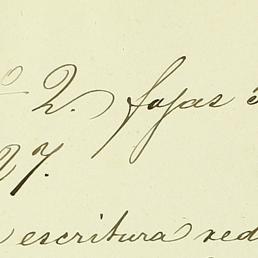 o 2. fojas
27.
escritura red